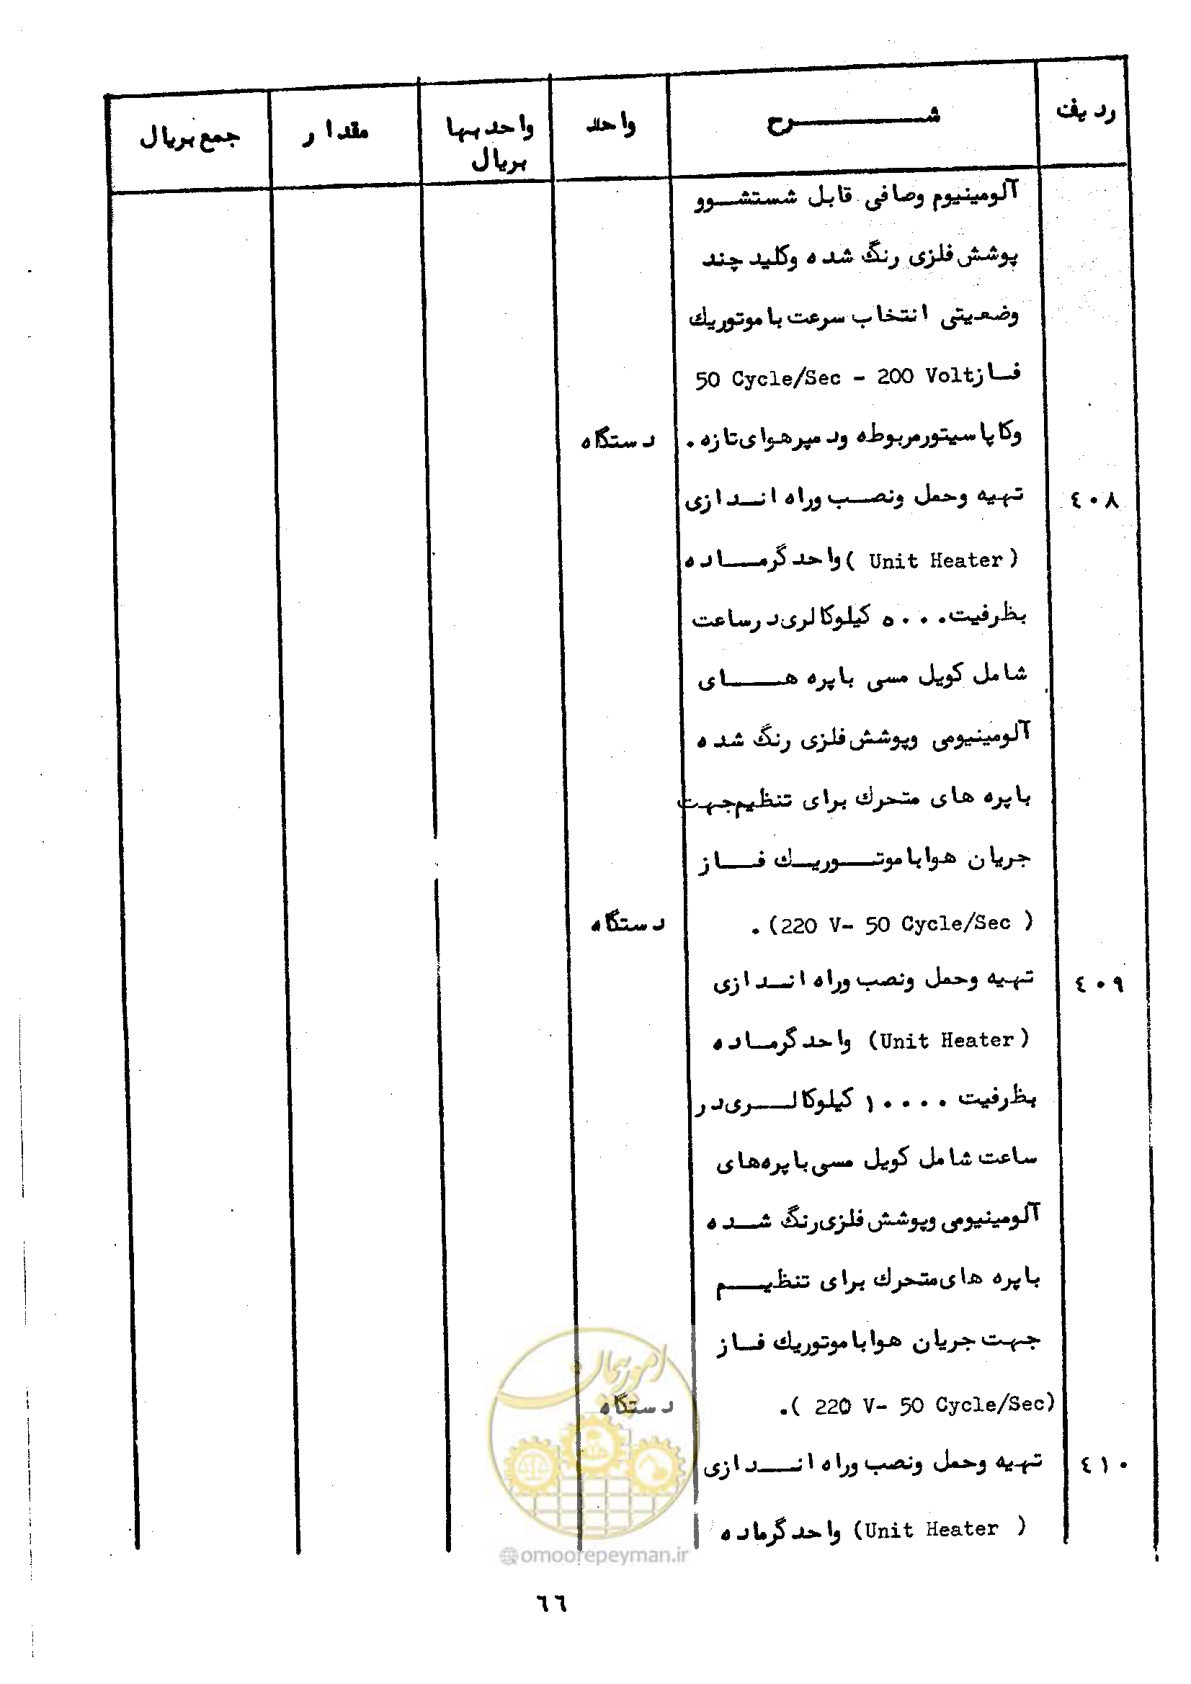 ردیف
شــــــــــرح
واحد
واحد بها
بریال
مقدار
جمع بریال
آلومینیوم وصافی قابل شستشــوو
پوشش فلزی رنگ شده وکلید چند
وضعیتی انتخاب سرعت با موتوریك
فــاز 50 Cycle/Sec - 200 Volt
وکاپاسیتور مربوطه ودمپر هوای تازه . دستگاه
٤٠٨ تهیه وحمل ونصــب وراه انــدازی
واحد گرمـــاده ( Unit Heater )
بظرفیت ۵۰۰۰ کیلوکالری در ساعت
شامل کویل مسی با پره هـــــای
آلومینیومی وپوشش فلزی رنگ شده
با پره های متحرك برای تنظیم جهت
جریان هوا با موتـــوریــك فـــاز
(220 V- 50 Cycle/Sec ) . دستگاه
٤٠٩ تهیه وحمل ونصب وراه انــدازی
واحد گرمــاده (Unit Heater )
بظرفیت ۱۰۰۰۰ کیلوکالـــری در
ساعت شامل کویل مسی با پره های
آلومینیومی وپوشش فلزی رنگ شــده
با پره های متحرك برای تنظیـــم
جهت جریان هوا با موتوریك فــاز
( 220 V- 50 Cycle/Sec). دستگاه
٤١٠ تهیه وحمل ونصب وراه انـــدازی
واحد گرماده (Unit Heater )
امور پیمان
@omoorepeyman.ir
٦٦